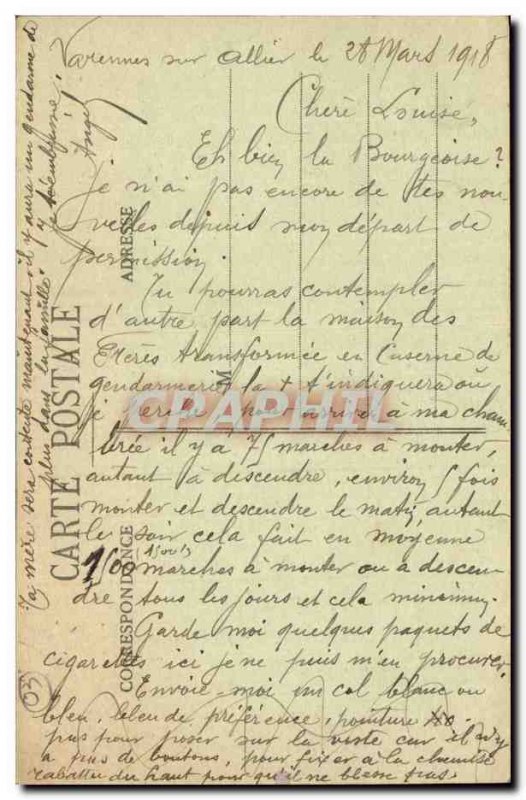 Varennes sur Allier le 28 Mars 1918
Chère Louise,
Eh bien la Bourgeoise?
je n'ai pas encore de tes nou-
velles depuis mon départ de
permission.
Tu pourras contempler
d'autre part la maison des
Frères transformée en Caserne de
gendarmerie la + t'indiquera où
je perche, pour arriver à ma cham
brée il y a 75 marches à monter,
autant à descendre, environ 5 fois
monter et descendre le matin, autant
le soir cela fait en moyenne
1500 (1500) marches à monter ou à descen
dre tous les jours et cela minimum.
Garde moi quelques paquets de
cigarettes ici je ne puis m'en procurer
Envoie-moi un col blanc ou
bleu, bleu de préférence, pointure
pas pour poser sur la veste car il n'y
a pas de boutons, pour fixer à la chemise
rabattu du haut pour qu'il ne blesse pas.
Ta mère sera contente maintenant, il y aura un gendarme de
plus dans la famille.
je t'embrasse.
CARTE POSTALE
CORRESPONDANCE
ADRESSE
M
03
CPAPHIL